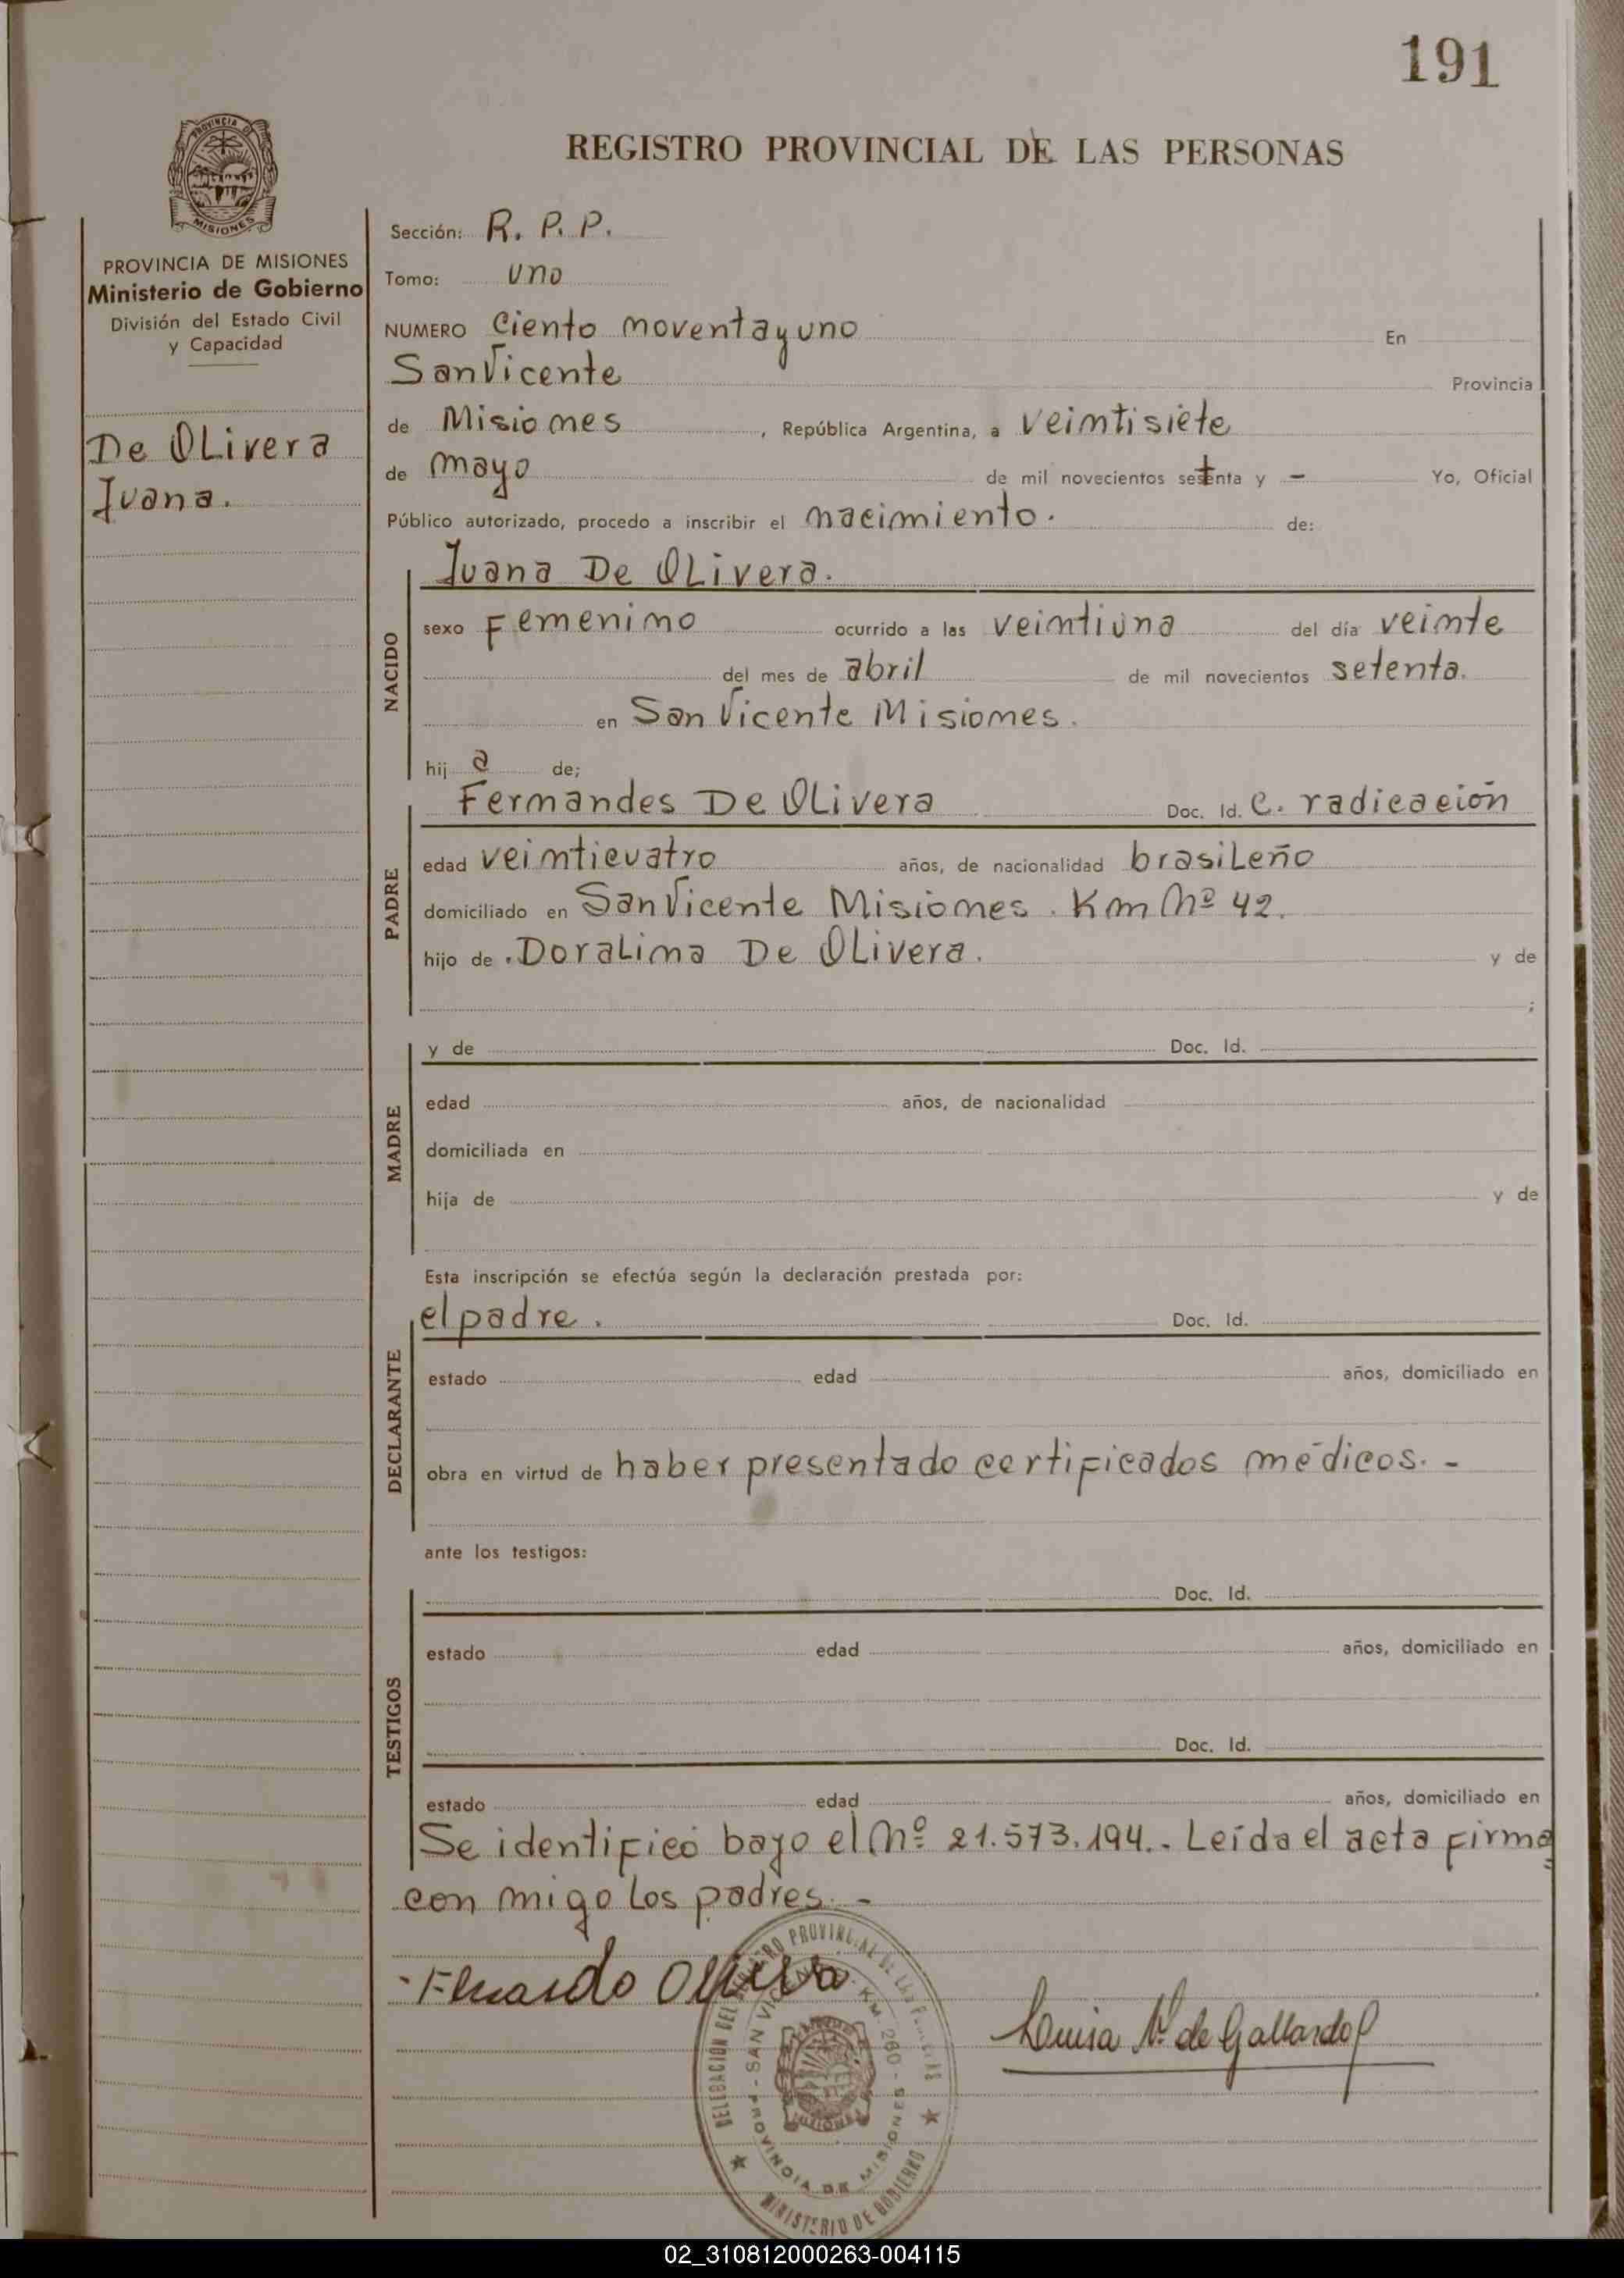 191
REGISTRO PROVINCIAL DE LAS PERSONAS
PROVINCIA DE
MISIONES
PROVINCIA DE MISIONES
Ministerio de Gobierno
División del Estado Civil
y Capacidad
De OLivera
Juana.
Sección: R. P. P.
Tomo: uno
NUMERO Ciento noventa y uno En
San Vicente Provincia
de Misiones, República Argentina, a veintisiete
de mayo de mil novecientos setenta y - Yo, Oficial
Público autorizado, procedo a inscribir el nacimiento. de:
NACIDO
Juana De OLivera.
sexo Femenino ocurrido a las veintiuna del día veinte
del mes de abril de mil novecientos setenta.
en San Vicente Misiones.
hij a de;
PADRE
Fernandes De OLivera Doc. Id. C. radicación
edad veinticuatro años, de nacionalidad brasiLeño
domiciliado en San Vicente Misiones. Km Nº 42.
hijo de . DoraLina De OLivera. y de
;
MADRE
y de Doc. Id.
edad años, de nacionalidad
domiciliada en
hija de y de
Esta inscripción se efectúa según la declaración prestada por:
DECLARANTE
el padre. Doc. Id.
estado edad años, domiciliado en
obra en virtud de haber presentado certificados médicos. -
ante los testigos:
TESTIGOS
Doc. Id.
estado edad años, domiciliado en
Doc. Id.
estado edad años, domiciliado en
Se identificó bajo el Nº 21.573.194.. Leída el acta firma=
con migo Los padres. -
Olivera
Luisa N. de Gallardo
DELEGACION DEL REGISTRO PROVINCIAL DE LAS PERSONAS
SAN VICENTE - KM. 260 -
PROVINCIA DE MISIONES
MISIONES
MINISTERIO DE GOBIERNO
02_310812000263-004115